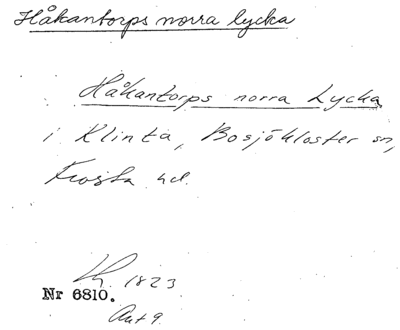 Håkantorps norra lycka
Håkantorps norra Lycka
i Klinta, Bosjökloster sn,
Frosta hd.
Lk. 1823
Nr 6810.
Akt 9